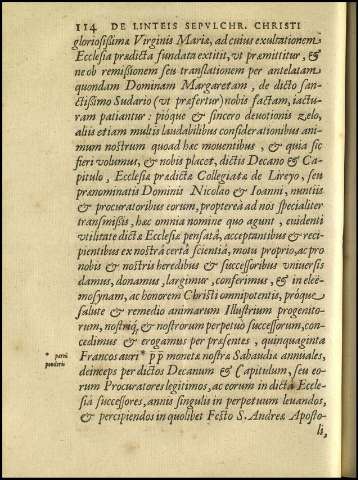 114 DE LINTEIS SEPVLCHR. CHRISTI
gloriosissimæ Virginis Mariæ, ad cuius exultationem
Ecclesia prædicta fundata extitit, vt præmittitur, &
ne ob remissionem seu translationem per antelatam
quondam Dominam Margaretam, de dicto san-
ctissimo Sudario (vt præfertur) nobis factam, iactu-
ram patiantur: pióque & sincero deuotionis zelo,
aliis etiam multis laudabilibus considerationibus ani-
mum nostrum quoad hæc mouentibus, & quia sic
fieri volumus, & nobis placet, dictis Decano & Ca-
pitulo, Ecclesiæ prædictæ Collegiatæ de Lireyo, seu
prænominatis Dominis Nicolao & Ioanni, nuntiis
& procuratoribus eorum, propterea ad nos specialiter
transmissis, hæc omnia nomine quo agunt, euidenti
vtilitate dictæ Ecclesiæ pensatâ, acceptantibus & reci-
pientibus ex nostrâ certâ scientiâ, motu proprio, ac pro
nobis & nostris heredibus & successoribus vniuersis
damus, donamus, largimur, conferimus, & in eleë-
mosynam, ac honorem Christi omnipotentis, próque
salute & remedio animarum Illustrium progenito-
rum, nostrūq, & nostrorum perpetuò successorum, con-
cedimus & erogamus per præsentes, quinquaginta
Francos auri * p̄p̄ monetæ nostræ Sabaudiæ annuales,
* parui
ponderis
deinceps per dictos Decanum & Capitulum, seu eo-
rum Procuratores legitimos, ac eorum in dicta Eccle-
sia successores, annis singulis in perpetuum leuandos,
& percipiendos in quolibet Festo S. Andreæ Aposto-
li,